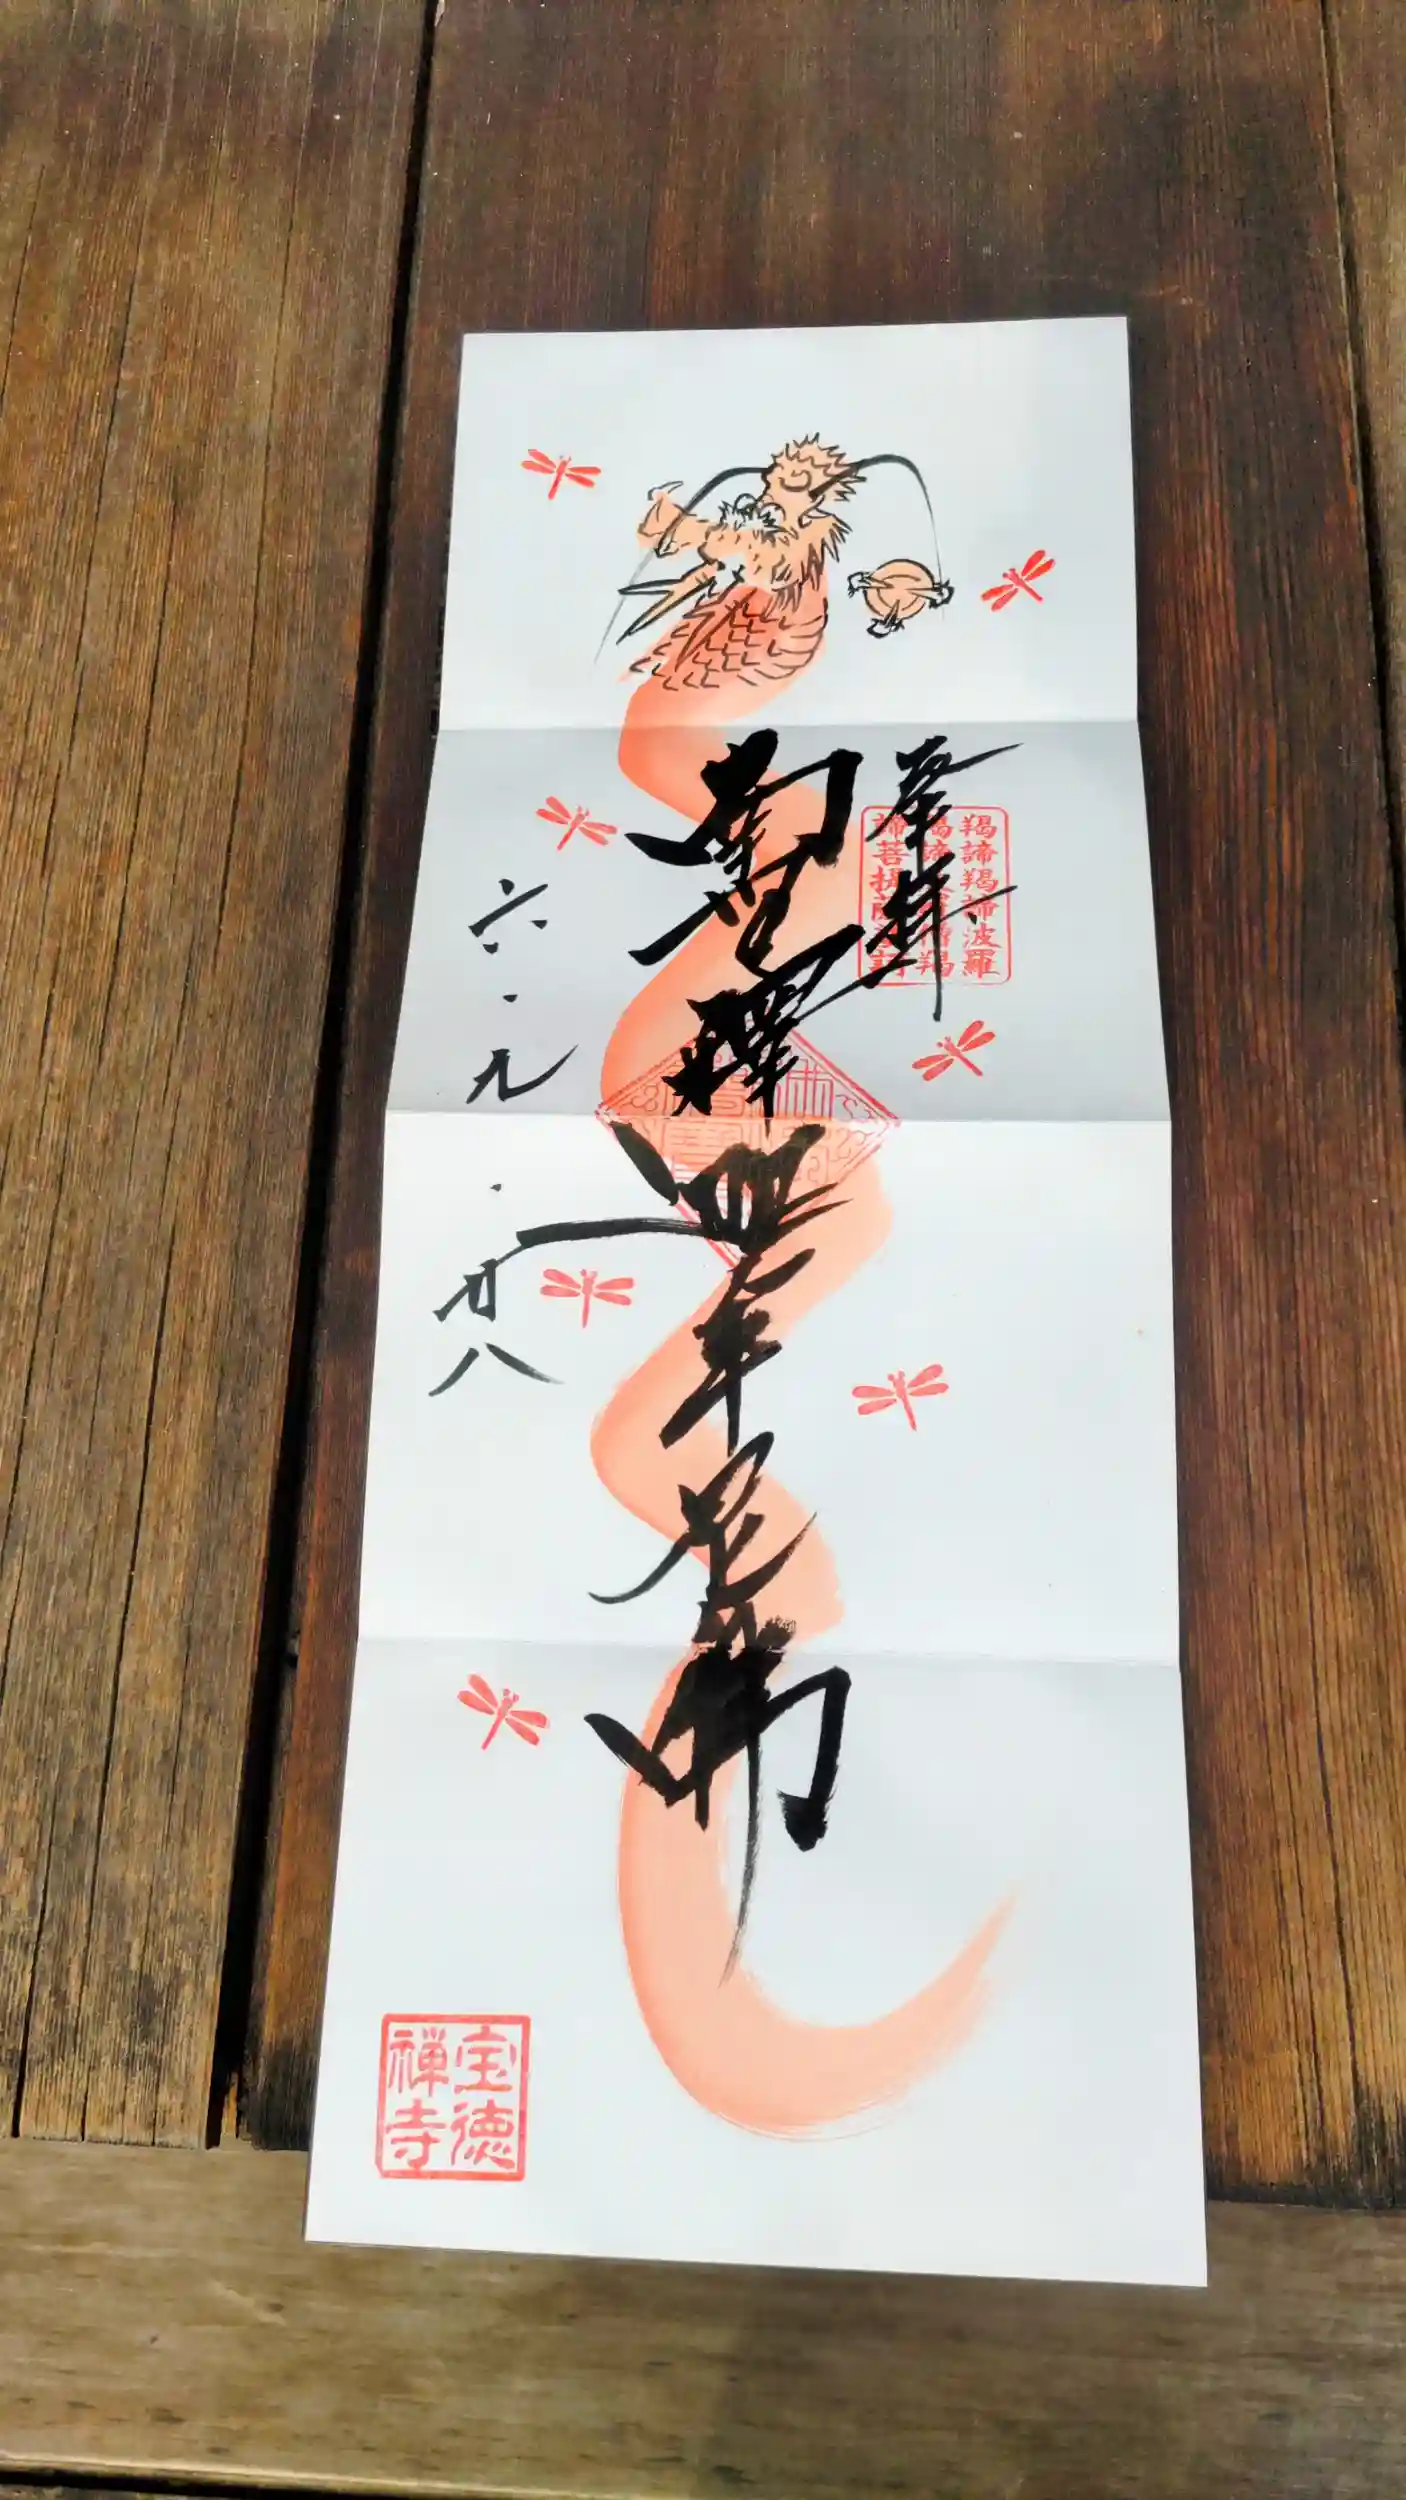 奉拝
羯諦羯諦波羅
羯諦波羅僧羯
諦菩提薩婆訶
南無釋迦牟尼佛
六・九・廿八
宝徳
禅寺